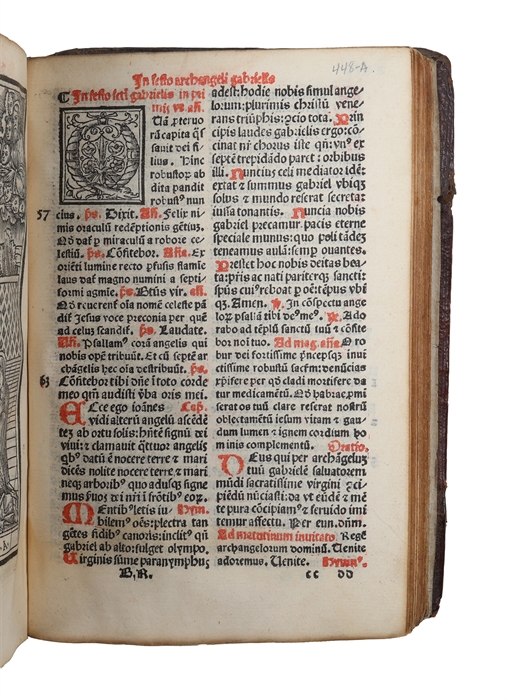 448-A.
In festo archangeli gabrielis
In festo scti gabrielis in pri
mis vs añ.
ra capita qs
sauit dei fi
lius. Hinc
robustor ab
dita pandit
robust⁹ nun
57 cius. ps. Dixit. Añ. Felix ni
mis oraculū redēptionis gētiuz.
Nō daf p miraculū a robore ce
lestiū. ps. Confitebor. Aña. Ex
oriēti lumine recto pfusis flamie
laus daf magno numini a septi
formi agmie. ps. Btūs vir. añ.
Nō reuerenf oīa nomē celeste pā
dif Jesus voce preconia per quē
ad celos scandif. ps. Laudate.
Añ. Psallam⁹ corā angelis qui
nobis opē tribuūt. Et cū septē ar
chāgelis hec oīa destribuūt. ps.
63 Cōfitebor tibi dñe ī toto corde
meo qm̄ audisti v̄ba oris mei.
Ecce ego ioānes Cap.
vidi alterū angelū ascēdē
tez ab ortu solis: hñtē signū dei
viui: z clamauit q̄tuor angelis
qb⁹ datū ē nocere terre z mari
dicēs nolite nocere terre z mari
necq̄ arborib⁹ quo adusq̄ signe
mus suos dei nr̄i ī frōtib⁹ eoꝝ.
Mentib⁹ letis iu Hym.
bilem⁹ oēs: plectra tan
gētes fidib⁹ canoris: inclit⁹ qn̄
gabriel ab alto: fulget olympo.
Virginis sūme paranymphus
B.R.
adest: hodie nobis simul ange/
lorum: plurimis christū vene/
rans triūphis: ocio tota. Prin
cipis laudes gabrielis ergo: cōn/
cinat nr̄ chorus iste qn̄: vn⁹ ex
septē trepidādo paret: orbibus
illi. Nuntius celi mediator idē:
extat z summus gabriel vbiqz
solus z mundo reserat secreta:
iussa tonantis. Nuncia nobis
gabriel precamur pacis eterne
speciale munus: quo poli tādē
teneamus aulā: semp ouantes.
Prestet hoc nobis deitas bea/
ta: pr̄is ac nati paritereqz sancti:
spūs cui⁹ reboat p oē: tēpus vbi
qz. Amen. ℣. In cōspectu ange
loꝝ psallā tibi de⁹ me⁹. ℟. Ado
rabo ad tēplū sanctū tuū z cōfite
bor noi tuo. Ad mag. añā O ro
bur dei fortissime pnceps
incentissime robustū facm: denūcias
xp̄ifere per qd̄ cladi mortifere da
tur medicamētū.
seratos tuū clare reserat nostrū
oblectamentū iesum vitam z gau
dium lumen z ignem cordium ho
minis complementū. Oratio.
Deus qui per archāgelū
tuū gabrielē saluatorem
mūdi sacratissime virgini cci
piēdū nūciasti: da vt eūdē z mē
te pura cōcipiam⁹ z feruido imi
temur affectu. Per eun. dn̄m.
Ad matutinum inuitato. Regē
archangelorum dominū. Venite
adoremus. Venite. Hymn⁹.
cc dd